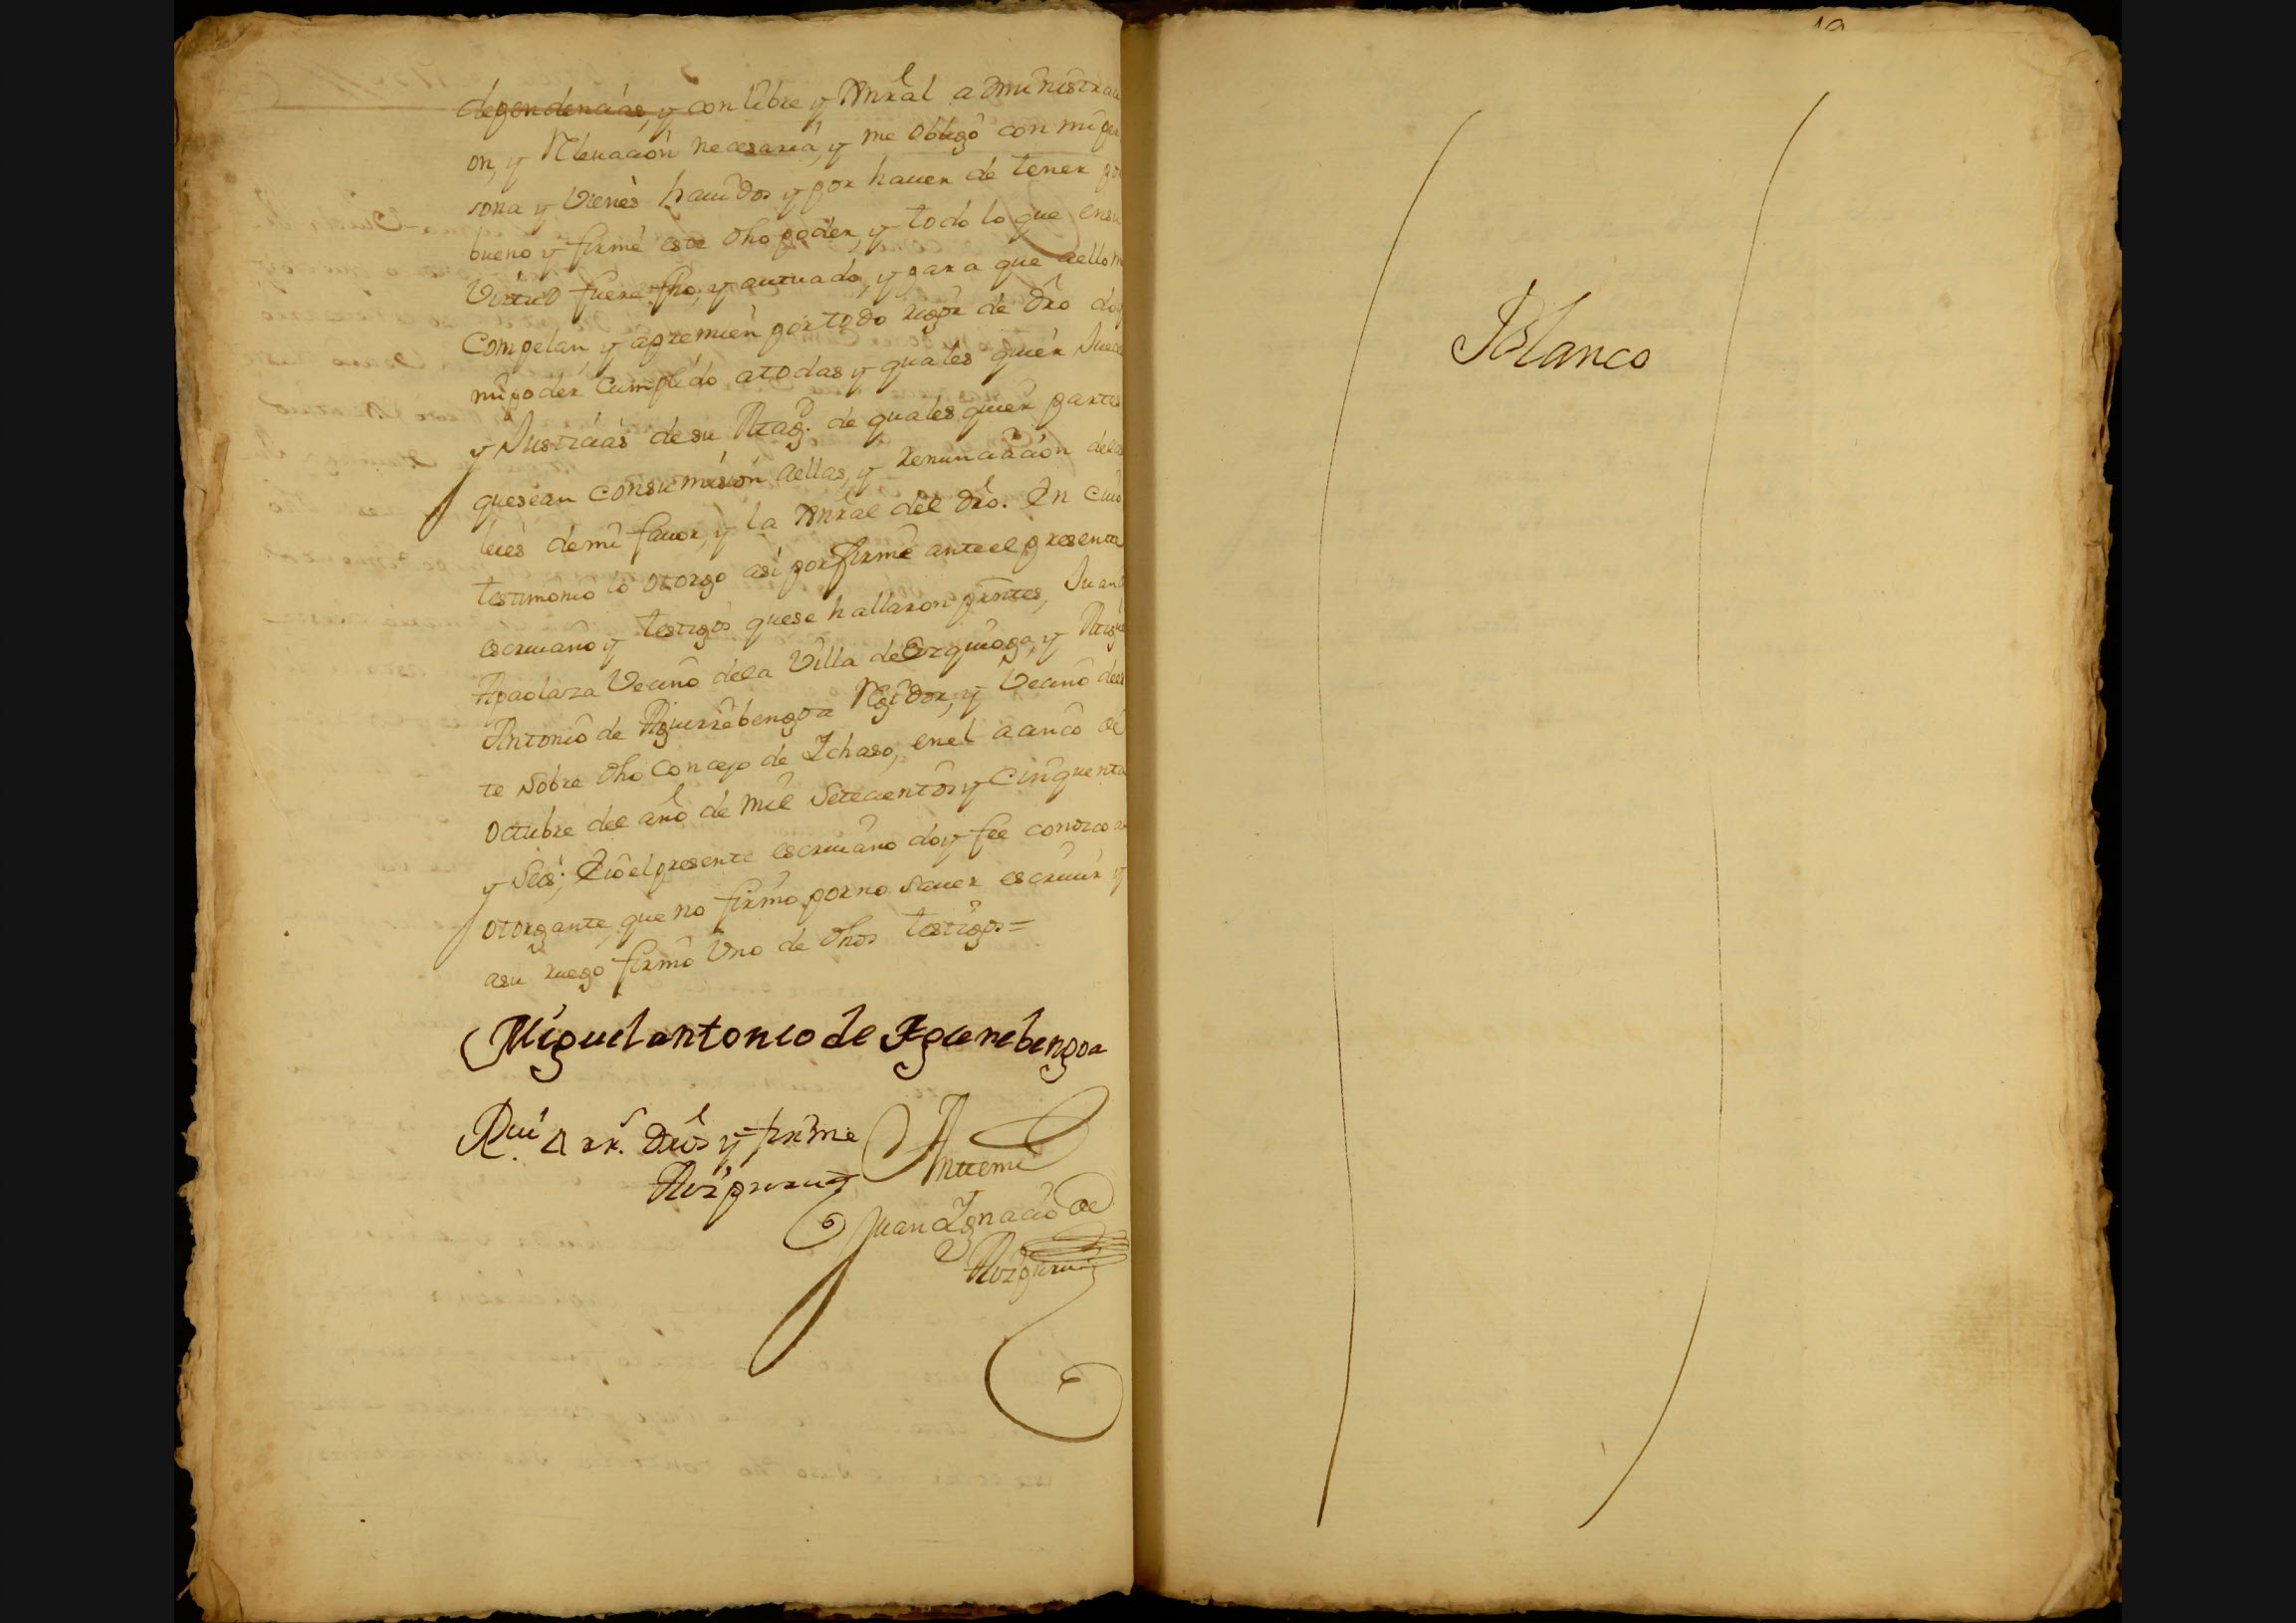 dependencias, y con libre y Gnral administraci
on, y Relevación necesaria, y me obligó con mi per
sona y Vienes hauidos y por hauer de tener por
bueno y firme este dho poder, y todo lo que ensu
Virtud fuere fho, y autuado, y para que aello m
Compelan y apremien por todo rigor de dro doy
mi poder Cumplido atodas y quales quier Jueces
y Justicias desu Mag. de quales quier partes
quesean consumisión aellas, y renunciacion delas
leies demi fauor, y la Gnral del dro. En cuio
testimonio lo otorgo asi por firme anteel presente
escriuano y testigos quese hallaron prntes, Juan
Apaolaza Vecino dela Villa de Ezquioga, y Migul
Antonio de Aguirrebengoa Regidor, y Vecino dees
te sobre dho Concejo de Ichaso, enel a cinco de
octubre del año de mil Setecientos y Cinquenta
y Seis; E io el presente escriuano doy fee conozco al
otorgante, que no firmo por no sauer escriuir y
asu ruego firmó Vno de dhos testigos =
Miguel antonio de Aguirebengoa
dros y firme
Antemi
Juan Ignacio de
19
Blanco